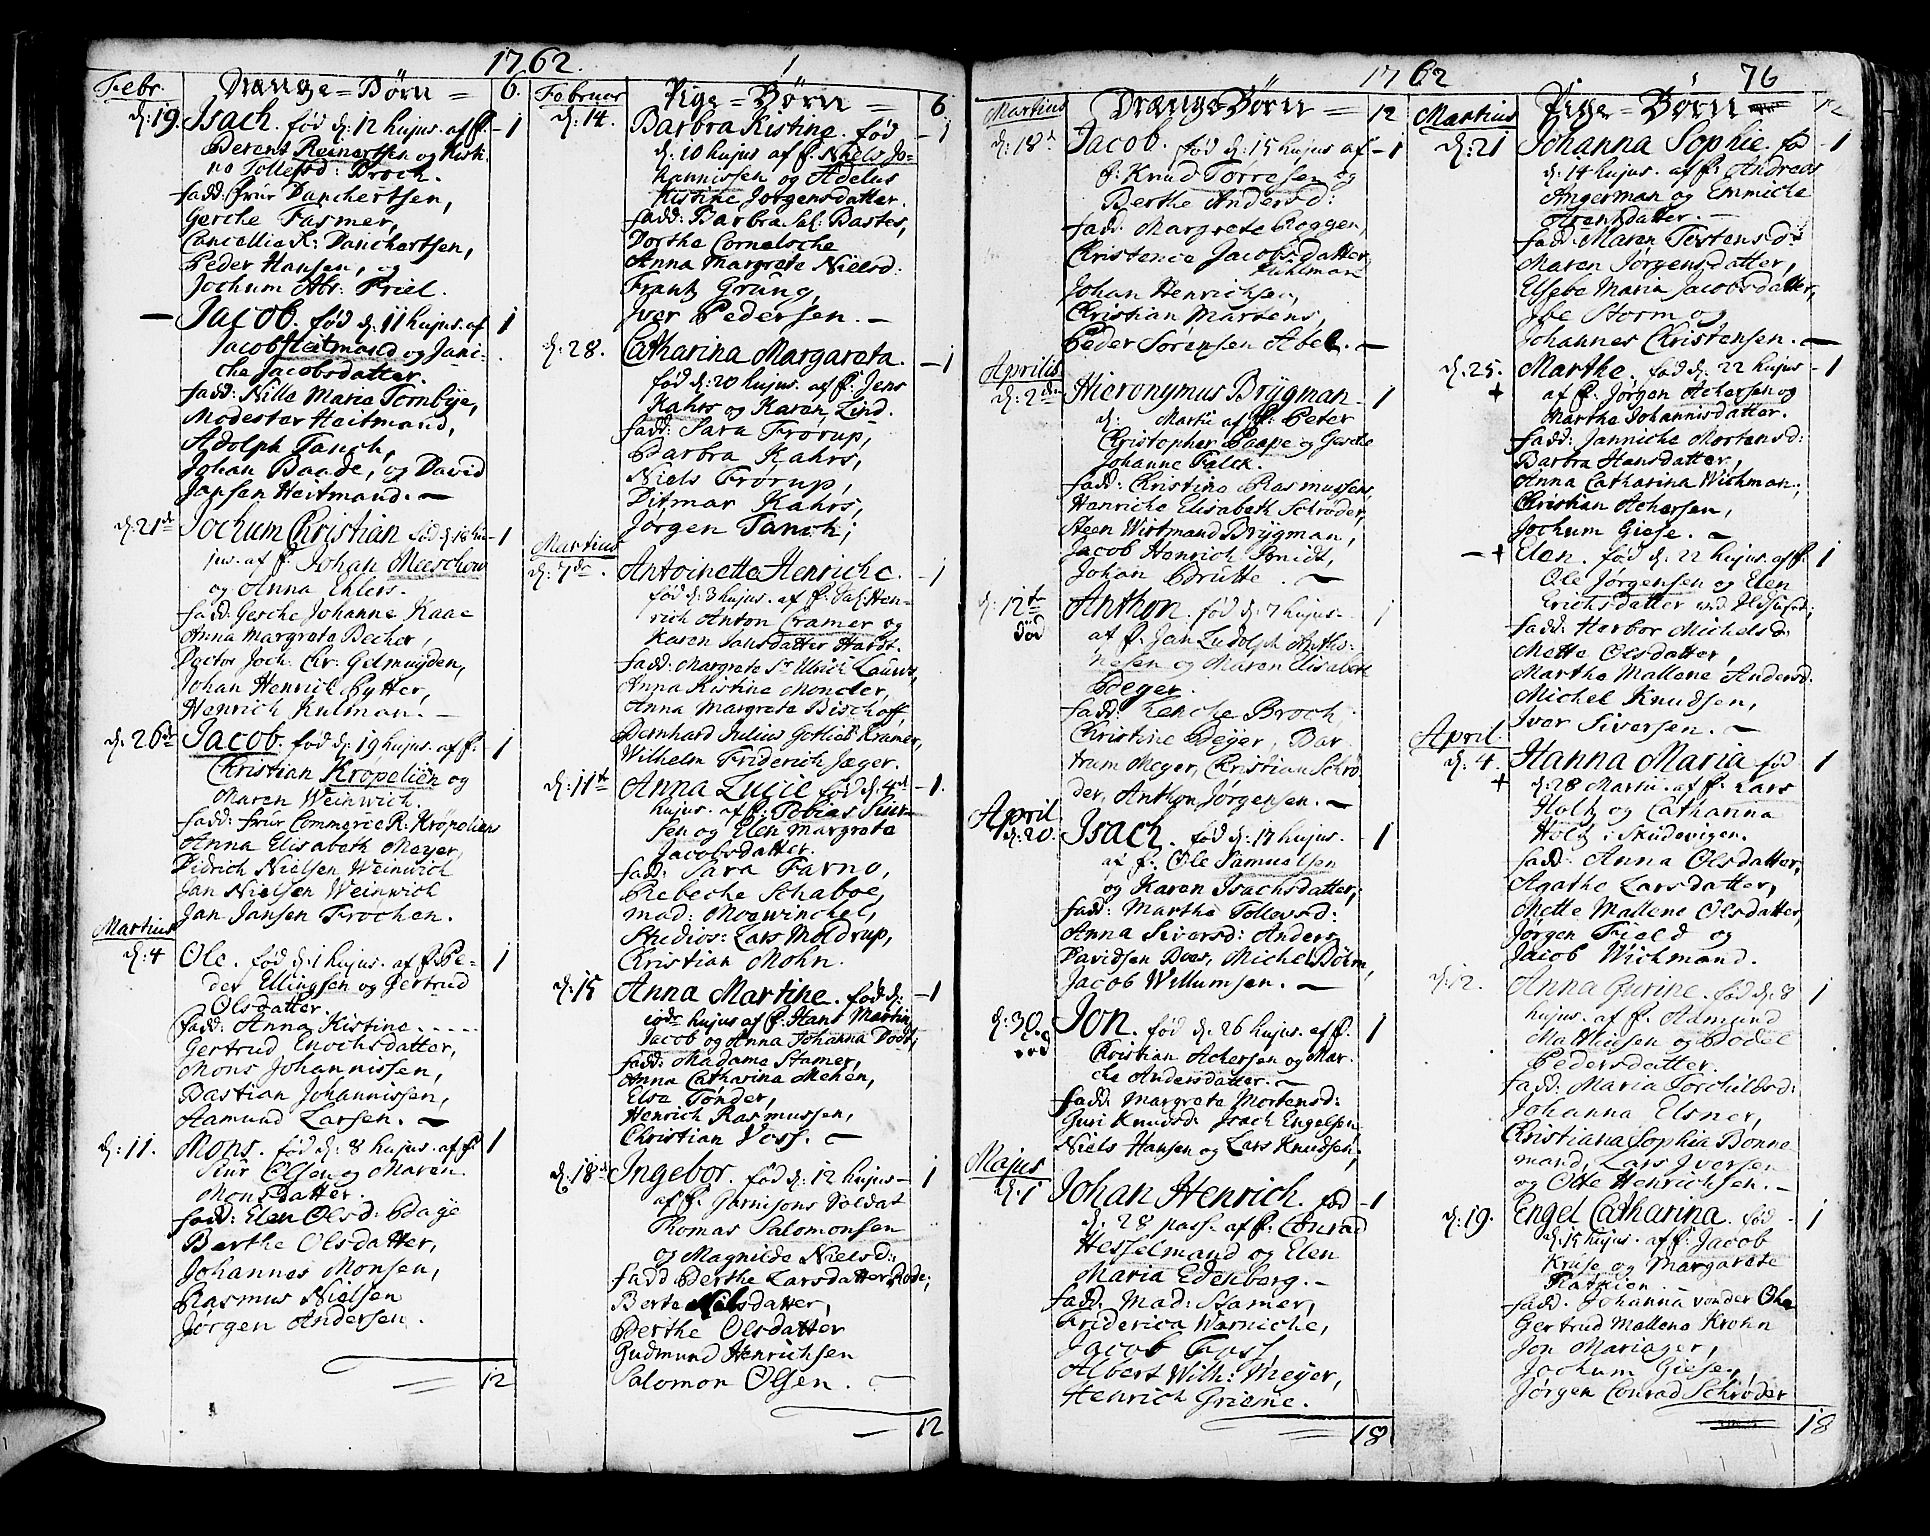 1762.
Febr. Drænge=Børn= 6.
d: 19. Isach. fød d: 12 hujus. af f. 1
Berent Reinertsen og Kisti-
na Tollefsd: Broch.
fadd: frür Danchertsen,
Gerche Fasmer,
Cancellie R: Danchertsen,
Peder Hansen, og
Jochum Abr: Friel.
Jacob. fød d: 11 hujus. af 1
Jacob Heitmand og Jani-
che Jacobsdatter.
fadd: Nille Marie Tornbÿe,
Modester Heitmand,
Adolph Tanch,
Johan Baade, og David
Jansen Heitmand.
d: 21de Jochum Christian fød d: 18 hu- 1
jus. af f. Johan Meeschow
og Anna Ehlers.
fadd: Gesche Johanne Kaae
Anna Margrete Becher,
Doctor Joch: Chr: Gelmuÿden,
Johan Henrich Pÿtter,
Henrich Kulman.
d: 26de Jacob. fød d: 19 hujus. af f. 1
Christian Kropelien og
Maren Weinwich.
fadd: frür Commerce R. Kröpeliens
Anna Elisabeth Meyer,
Didrich Nielsen Weinwich
Jan Nielsen Weinwich
Jan Jansen Trochen.
Martius
d: 4 Ole. fød d: 1 hujus. af f. Pe- 1
der Ellingsen og Gertrud
Olsdatter.
fadd: Anna Kistine
Gertrud Enochsdatter,
Mons Johannissen,
Bastian Johannissen,
Aamund Larsen.
d: 11. Mons. fød d: 8 hujus. af f. 1
Siur Olsen og Maren
Monsdatter.
fadd: Elen Olsd: Bage
Berthe Olsdatter,
Johannes Monsen,
Rasmus Nielsen
Jørgen Andersen.
12
Februar Pige=Børn= 6
d: 14. Barbra Kistine. fød 1
d: 10 hujus af f. Niels Jo-
hannissen og Adelus
Kistine Jørgensdatter.
fadd: Barbra Sal: Bastes,
Dorthe Cornelsche
Anna Margrete Nielsd:
Frantz Grüng,
Iver Pedersen.
d: 28. Catharina Margareta. 1
fød d: 20 hujus. af f. Jens
Kahrs og Karen Lind.
fadd: Sara Frorup,
Barbra Kahrs,
Niels Frorup,
Ditmar Kahrs,
Jørgen Tanch;
Martius
d: 7de. Antoinette Henriche. 1
fød d: 3 hujus. af f. Sal: Hen-
rich Anton Cramer og
Karen Jansdatter Hardt.
fadd: Margrete Sr Ulrich Lauws,
Anna Kistine Moncler,
Anna Margrete Bischoff,
Bernhard Julius Gotlieb Kramer,
Wilhelm Friderich Jæger.
d: 11te Anna Lucie fød d: 4de 1.
hujus. af f. Tobias Siur-
sen og Elen Margrete
Jacobsdatter.
fadd: Sara Farno,
Rebeche Schaboe,
Mad: Mowinchel,
Studios: Lars Moldrup,
Christian Mohn.
d: 15 Anna Martine. fød d: 1
hujus af f. Hans Martin
Jacob og Anna Johanna Dodt;
fadd: Madame Stamer,
Anna Catharina Mehen,
Elsa Tönder,
Henrich Rasmussen,
Christian Voss.
d: 18de Ingebor. fød d: 12 hujus 1
af f. Garnisons Soldat
Thomas Salomonsen
og Magnilde Nielsd:
fadd Berthe Larsdatter Rode;
Berte Nilsdatter,
Berthe Olsdatter
Gudmund Henrichsen
Salomon Olsen.
12
1762 76
Martius Drænge=Børn= 12
d: 18de Jacob. fød d: 15 hujus af 1
f. Knud Torresen og
Berthe Andersd:
fadd: Margrete Roggen,
Christence Jacobsdatter
Kühlman
Johan Henrichsen,
Christian Martens,
Peder Sørensen Abel.
Aprilis
d: 2den Hieronymus Brÿgman 1
d: Martii af f. Peter
Christopher Paape og Gesche
Johanne Falck.
fadd: Christina Rasmussens,
Henriche Elisabeth Schrøder,
Steen Wirtmand Brÿgman,
Jacob Henrich Smidt,
Johan Grütte.
d: 12te Anthon. fød d: 7 hujus. 1
Död af f. Jan Ludolph Antho-
nesen og Maren Elisabeth
Beger.
fadd: Lenche Broch
Christine Beÿer, Bar-
trum Meÿer, Christian Schrø-
der, Anthon Jørgensen.
April
d: 20. Isach. fød d: 17 hujus. 1
af f. Ole Samuelsen
og Karen Isachsdatter;
fadd: Marthe Tollevsd:
Anna Siversd: Anders
Davidsen Boes, Michel Böhm,
Jacob Willumsen.
d: 30. Jon. fød d: 26 hujus. af f. 1
Död Christian Achersen og Mar-
the Andersdatter.
fadd: Margrete Mortensd:
Guri Knudsd: Isach Engelsen
Niels Hansen og Lars Knudsen,
Majus
d: 1 Johan Henrich. fød 1
d: 28 pass. af f. Conrad
Hesselmand og Elen
Maria Edenberg.
fadd: Mad: Stamer,
Friderica Warniche,
Jacob Foss,
Albert Wilh: Meÿer,
Henrich Grieme.
18
Martius Pige=Børn 12
d: 21 Johanna Sophie. fød 1
d: 14 hujus. af f. Andreas
Angerman og Emmiche
Arentsdatter.
fadd: Maren Testensdr
Maren Jørgensdatter,
Elsebe Maria Jacobsdatter,
Ibe Storm og
Johannes Christensen.
d: 25. Marthe. fød d: 22 hujus 1
+ af f. Jørgen Achersen og
Marthe Johannisdatter.
fadd: Janniche Mortensd:
Barbra Hansdatter,
Anna Catharina Wichman,
Christian Achersen,
Jochum Giese.
+ Elen. fød d: 22 hujus. af f. 1
Ole Jørgensen og Elen
Erichsdatter
fadd: Herbor Michelsd.
Mette Olsdatter,
Marthe Mallene Andersd:
Michel Knudsen,
Iver Siversen.
April.
d: 4. Hanna Maria fød 1
+ d: 28 Martii af f. Lars
Holtz og Catharina
Holtz i Skudevigen.
fadd: Anna Olsdatter,
Agathe Larsdatter,
Mette Mallene Olsdatter,
Jørgen Field og
Jacob Wichmand.
d: 12. Anna Gurine. fød d: 8 1
hujus. af f. Admund
Mathiesen og Bodel
Pedersdatter.
fadd: Maria Torchildsd:
Johanna Elsner,
Christiana Sophia Bonne
mand, Lars Iversen
og Otte Henrichsen.
d: 19. Engel Catharina. fød 1
d: 15 hujus. af f. Jacob
Kruse og Margarete
Rathien
fadd. Johanna von der Ohe
Gertrud Mallena Krohn
Jon Mariager,
Jochum Giese,
Jørgen Conrad Schrøder
18